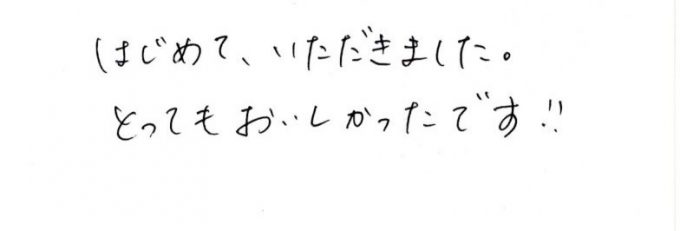 はじめて、いただきました。
とってもおいしかったです!!